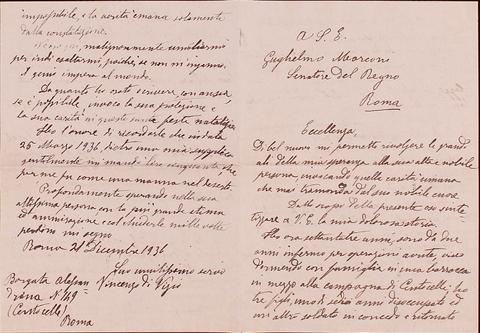 impossibile, e la verità emana solamente
dalla constatazione.
malignamente umiliarmi
per indi esaltarmi, poichè, se non m'inganno,
il genio impera al mondo.
Da quanto ho osato scrivere, con ansia,
se è possibile invoco la sua protezione e
la sua carità in queste sante feste natalizie.
Ho l'onore di ricordarle che in data
25 Marzo 1936, dietro una mia supplica
gentilmente mi mandò lire cinquanta, che
per me fu come una manna nel deserto.
Profondamente sperando nella sua
altissima persona con la più grande stima
ed ammirazione col chiederle mille volte
perdono mi segno
Roma 21 Dicembre 1936
Suo umilissimo servo
Vincenzo di
Borgata Alessan=
drina N. 149
(Centocelle)
Roma
A S. E.
Guglielmo Marconi
Senatore del Regno
Roma
Eccellenza,
Di bel nuovo mi permetto rivolgere le grandi
ali della mia speranza alla sua alta e nobile
persona, invocando quella carità umana
che mai tramonta dal suo nobile cuore.
Allo scopo della presente oso sinte
tizzare a V. E. la mia dolorosa storia:
Ho ora ottantatre anni, sono da due
anni infermo per operazioni avute, vivo
dormendo con famiglia in una baracca
in mezzo alla campagna di Centocelli; ho
tre figli, uno è sedici anni disoccupato ed
un altro soldato in congedo e ritornato